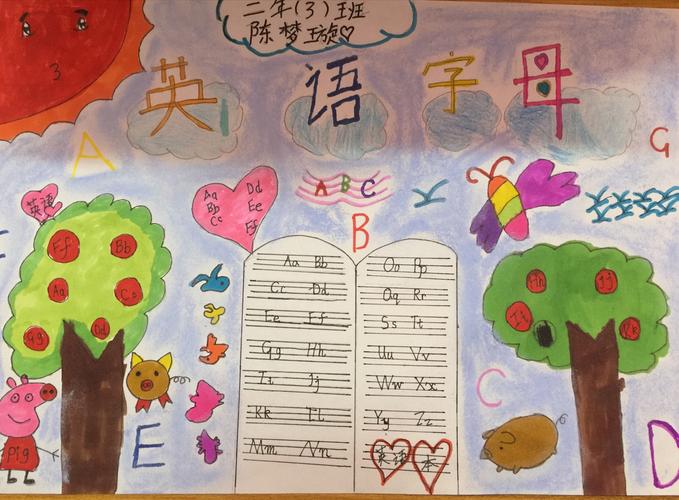 二年(3)班
陈梦璇
英语字母
A
G
英语
Aa
Bb
Cc
Dd
Ee
Ff
A B C
B
F
Ff
Bb
Aa
Cc
Gg
Dd
Hh
Jj
Ii
Kk
Aa Bb
Cc Dd
Ee Ff
Gg Hh
Ii Jj
Kk Ll
Mm Nn
Oo Pp
Qq Rr
Ss Tt
Uu Vv
Ww Xx
Yy Zz
英语本
C
Pig
E
D